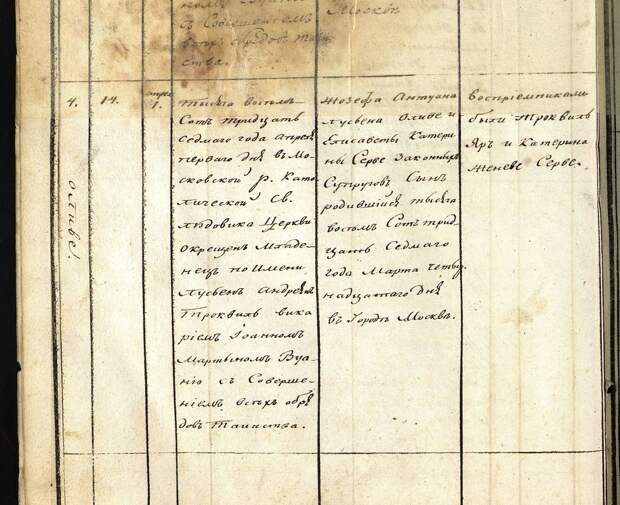 Москвѣ.
съ Совершеніемъ
всѣхъ обрядовъ таин
ства.
4.
14.
апрѣл
1.
оливье.
тысяча восемъ
Сотъ тридцать
Седмаго года Апрѣля
перваго дня въ Мо
сковской р. Като
лической Св.
Людовика Церкви
Окрещенъ Младе-
нецъ по имени
Лусьенъ Андрей
Троквихъ вика
ріемъ Іоанномъ
Мартыномъ Вуа-
нію съ Соверше-
ніемъ всѣхъ обря
довъ таинства.
Жозефа Антуана
Лусьена Оливье и
Елисаветы Катери
ны Серве законныхъ
Супруговъ Сынъ
родившійся тысяча
восемъ Сотъ трид
цать Седмаго
года Марта четыр
надцатаго дня
въ Городѣ Москвѣ.
воспріемниками
были Троквихъ
Яръ и Катерина
Женевье Серве.